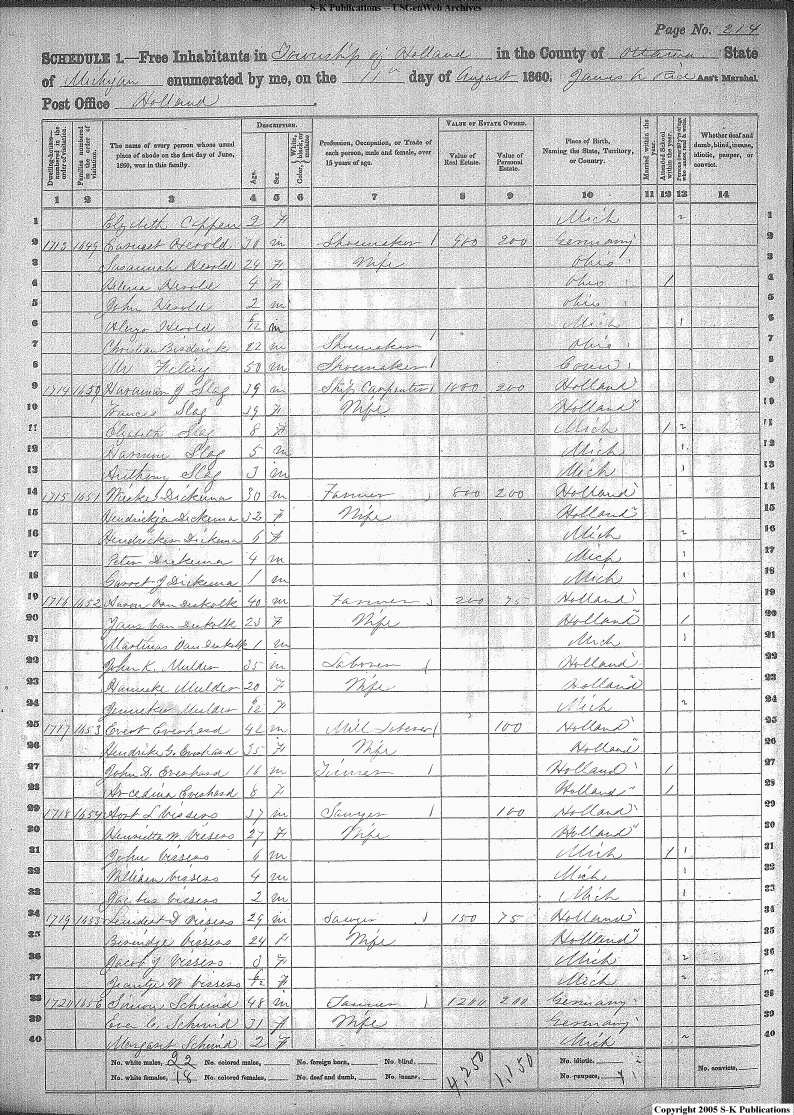 S-K Publications – USGenWeb Archives
Page No. 214
SCHEDULE 1.—Free Inhabitants in Township of Holland in the County of Ottawa State
of Michigan enumerated by me, on the 11th day of August 1860. Ass't Marshal
Post Office Holland
Dwelling-houses— numbered in the order of visitation.
Families numbered in the order of visitation.
The name of every person whose usual place of abode on the first day of June, 1860, was in this family.
DESCRIPTION.
Age.
Sex
Color, White, black, or mulatto
Profession, Occupation, or Trade of each person, male and female, over 15 years of age.
VALUE OF ESTATE OWNED.
Value of Real Estate.
Value of Personal Estate.
Place of Birth, Naming the State, Territory, or Country.
Married within the year.
Attended School within the year.
Whether deaf and dumb, blind, insane, idiotic, pauper, or convict.
1 2 3 4 5 6 7 8 9 10 11 12 13 14
1 Elizbith Cappen 2 F Mich 1
2 1713 1649 Earnest Herold 30 m Shoemaker 900 200 Germany 2
3 Susannah Herold 24 F Wife Ohio 3
4 Herold 4 F Ohio 1 4
5 John Herold 2 m Ohio 5
6 Alonzo Herold 6/12 m Mich 6
7 Christian 22 m Shoemaker Ohio 7
8 Mr 50 m Shoemaker 8
9 1714 1650 Slag 39 m Ship Carpenter 1000 200 Holland 9
10 Francis Slag 39 F Wife Holland 10
11 Elizbeth Slag 8 F Mich 1 2 11
12 Harman Slag 5 m Mich 12
13 Anthony Slag 3 m Mich 13
14 1715 1651 Dickema 30 m Farmer 800 200 Holland 14
15 Hendrickjen Dickema 32 F Wife Holland 15
16 Dickema 6 F Mich 16
17 Peter Dickema 4 m Mich 17
18 Garret J Dickema 1 m Mich 18
19 1716 1652 Aaron 40 m Farmer 200 75 Holland 19
20 23 F Wife Holland 20
21 Martinus 1 m Mich 21
22 John K. Mulder 35 m Laborer Holland 22
23 Mulder 20 F Wife Holland 23
24 Mulder F Mich 24
25 1717 1653 Evert Everhard 42 m Mill Laborer 100 Holland 25
26 Hendrike G. Everhard 35 F Wife Holland 26
27 John D. Everhard 16 m Tinner Holland 1 27
28 Everhard 8 F Holland 1 28
29 1718 1654 Aort L Vissers 37 m Sawyer 100 Holland 29
30 Henrietta W. Vissers 27 F Wife Holland 30
31 John Vissers 6 m Mich 1 31
32 William Vissers 4 m Mich 32
33 Jacobus Vissers 2 m Mich 33
34 1719 1655 Leindert D Vissers 29 m Sawyer 150 75 Holland 34
35 Vissers 24 F Wife Holland 35
36 Jacob J Vissers 3 Mich 36
37 Jeantje W. Vissers 6/12 F Mich 37
38 1720 1656 Simon Schmid 48 m Tanner 1200 200 Germany 38
39 Eva C. Schmid 31 F Wife Germany 39
40 Margaret Schmid 2 F Mich 40
No. white males, 22 No. colored males, No. foreign born, No. blind, 4,250 1,150 No. idiotic,
No. white females, 18 No. colored females, No. deaf and dumb, No. insane, No. paupers, No. convicts,
Copyright 2005 S-K Publications